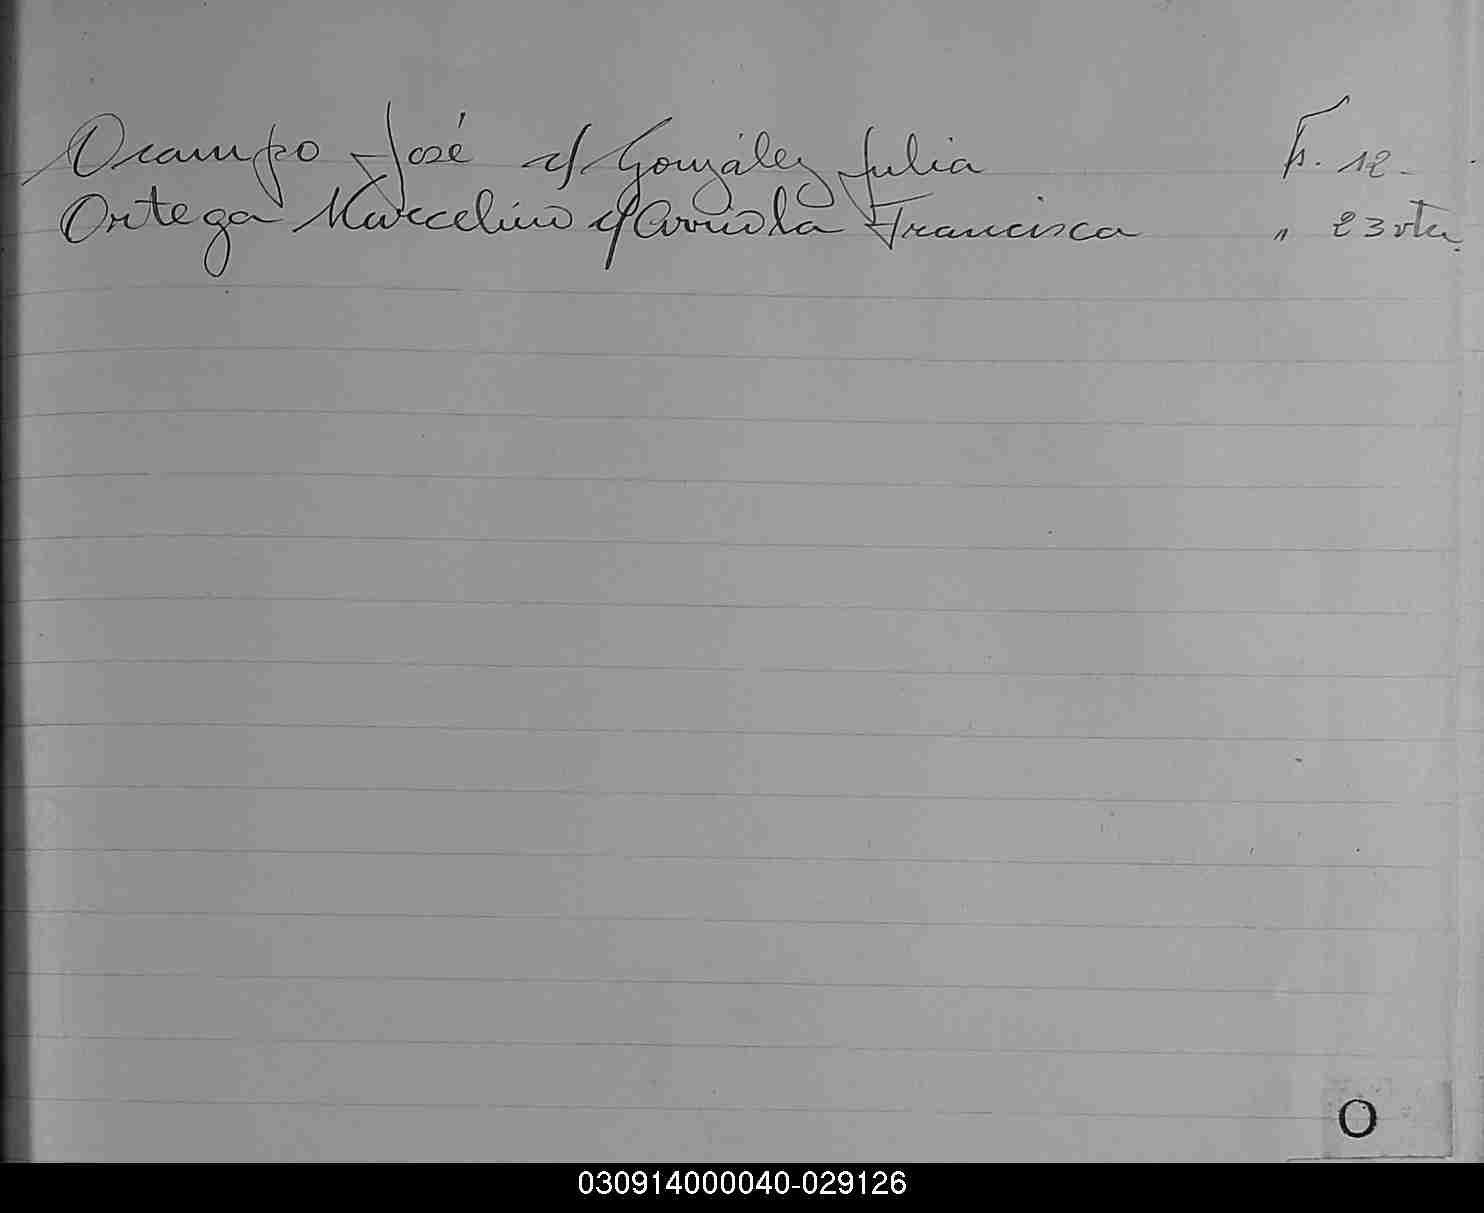 Ocampo José c/ González Julia F. 12.
Ortega Marcelino c/ Arriola Francisca " 23 vta.
O
030914000040-029126